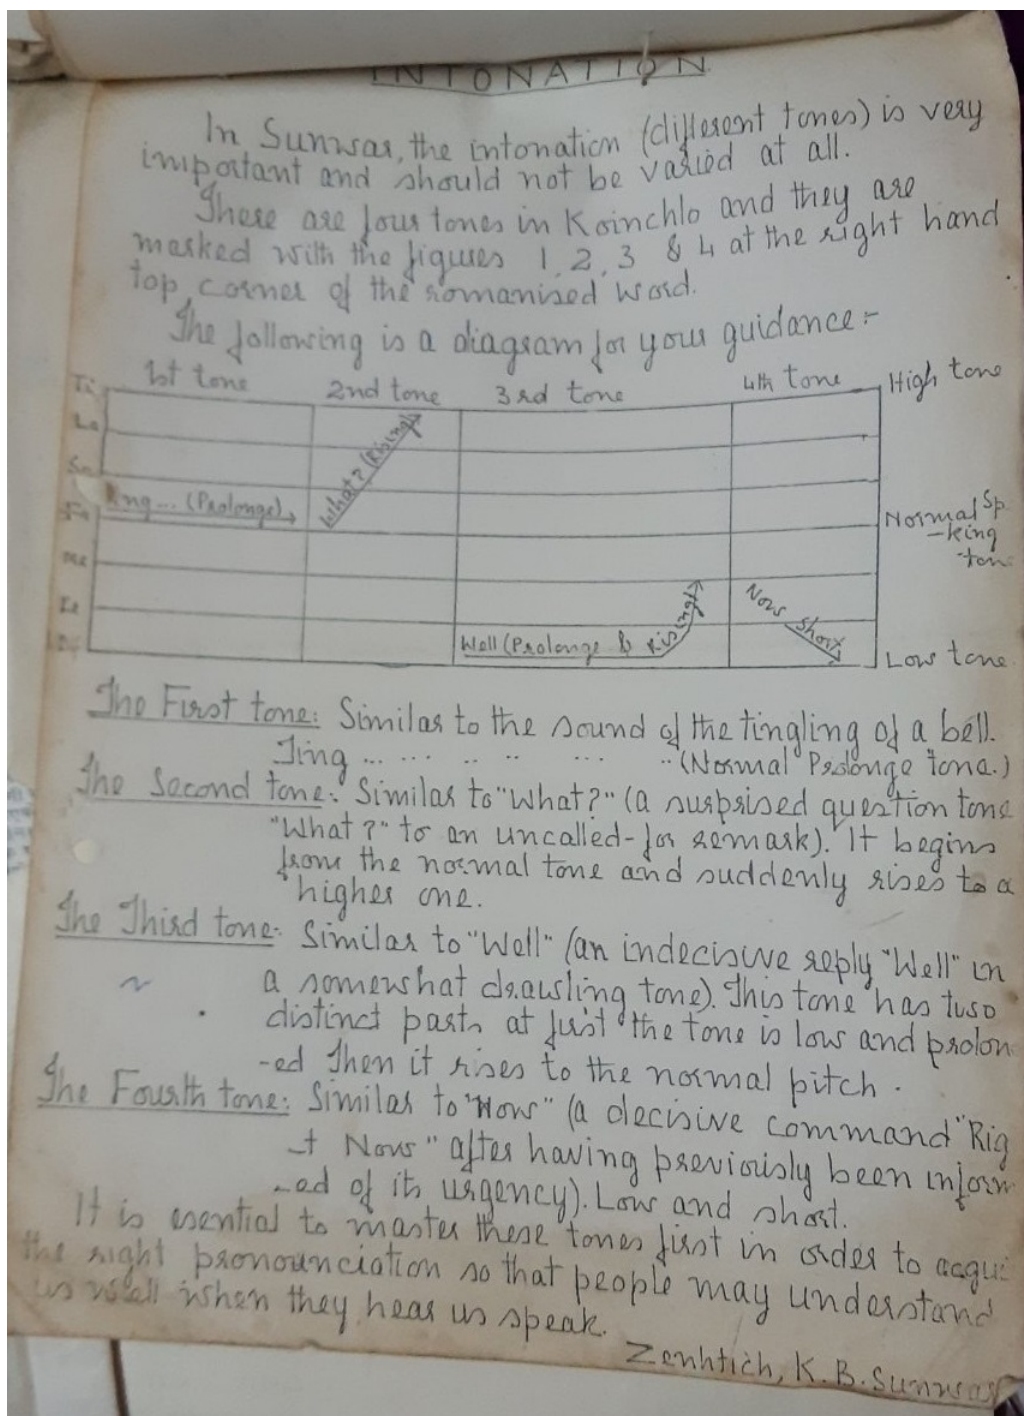 INTONATION
In Sunwar, the intonation (different tones) is very
important and should not be varied at all.
There are four tones in Koinchlo and they are
marked with the figures 1, 2, 3 & 4 at the right hand
top corner of the romanised word.
The following is a diagram for your guidance:-
1st tone 2nd tone 3rd tone 4th tone High tone
Ti
La
So
Fa
Me
Re
ing... (Prolonge)
What? (Rising)
Normal Sp
-king
ton
Well (Prolonge & Rising)
Now short
Low tone
The First tone: Similar to the sound of the tingling of a bell.
Ting ... ... .. .. ... .. (Normal Prolonge tone.)
The Second tone: Similar to "What?" (a surprised question tone
"What?" to an uncalled-for remark). It begins
from the normal tone and suddenly rises to a
higher one.
The Third tone: Similar to "Well" (an indecisive reply "Well" in
a somewhat drawling tone). This tone has two
distinct parts at first the tone is low and prolon
-ed Then it rises to the normal pitch.
The Fourth tone: Similar to "Now" (a decisive command "Rig
-t Now" after having previously been inform
-ed of its urgency). Low and short.
It is esential to master these tones first in order to acqui
the right pronounciation so that people may understand
us well when they hear us speak.
Zenhtich, K. B. Sunwar